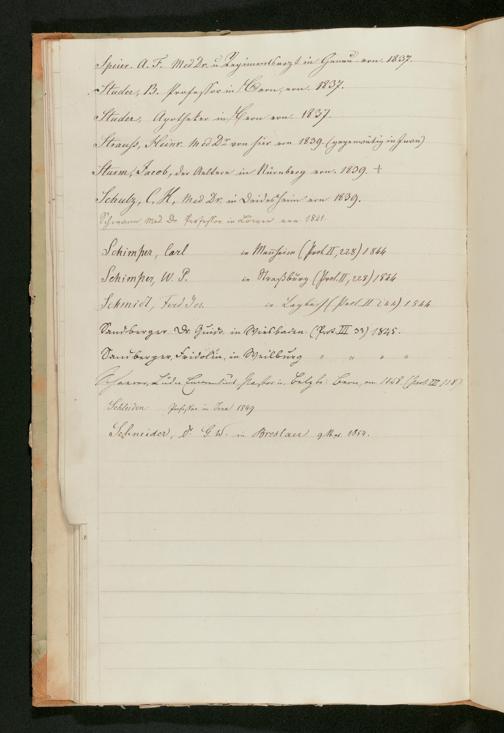 Speier, A. F. Med Dr. u. Regimentsarzt in Genau von 1837.
Studer, B. Professor in Bern, von 1837.
Studer, Apotheker in Bern von 1837.
Strauss, Heinr. Med Dr von hier von 1839. (gegenwärtig in
Sturm, Jacob, der Aeltere in Nürnberg von 1839. +
Schulz, C. H., Med Dr. in Deidesheim von 1839.
Schwann Med Dr Professor in Löwen von 1841.
Schimper, Carl in Manheim (Prot. II, 228) 1844
Schimper, W. P. in Straßburg (Prot. II, 228) 1844
Schmidt, Ferd Jos. in Laybach (Prot. II 244) 1844
Sandberger Dr Guido in Wiesbaden (Prot. III 33) 1845.
Sandberger, Fridolin, in Weilburg " " " "
Schaerer, Pfarrer in Belp b. Bern, (Prot. III
Schleiden Professor in Jena 1849
Schneider, Dr. G. W. in Breslau 9 1850.